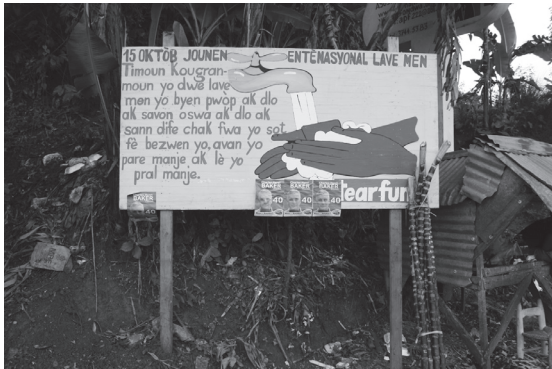 15 OKTÒB JOUNEN ENTÈNASYONAL LAVE MEN
Timoun kougran-
moun yo dwe lave
men yo byen pwòp ak dlo
ak savon oswa ak dlo ak
sann dife chak fwa yo sot
fè bezwen yo, avan yo
pare manje ak lè yo
pral manje.
BAKER
40
BAKER
40
BAKER
40
BAKER
40
tearfun